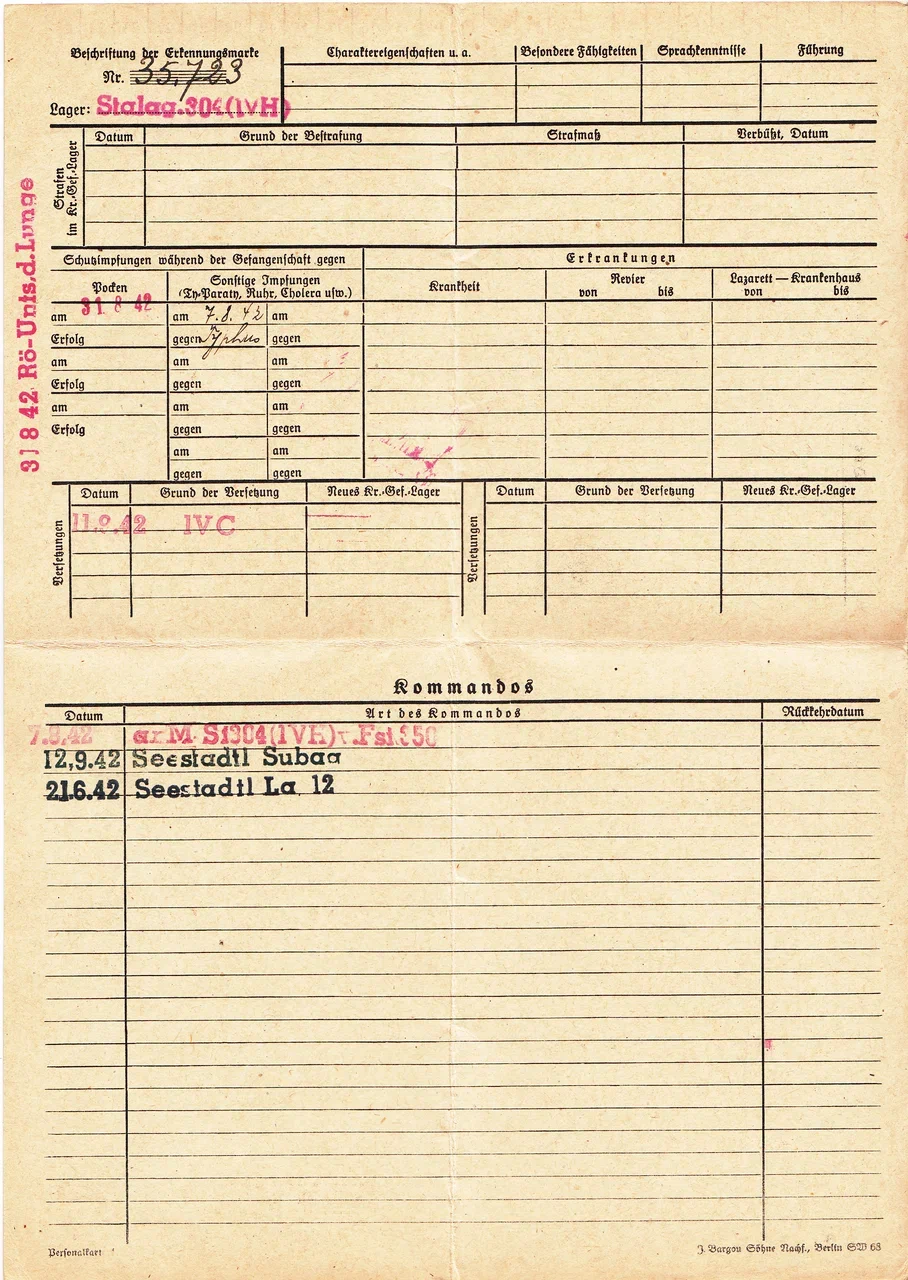 Beschriftung der Erkennungsmarke
Nr. 35,723
Lager: Stalag 304 (IVH)
Charaktereigenschaften u. a.
Besondere Fähigkeiten
Sprachkenntnisse
Führung
Strafen im Kr.-Gef.-Lager
Datum
Grund der Bestrafung
Strafmaß
Verbüßt, Datum
31 8 42 Rö-Unts.d.Lunge
Schutzimpfungen während der Gefangenschaft gegen
Erkrankungen
Pocken
Sonstige Impfungen
(Ty-Paraty, Ruhr, Cholera usw.)
Krankheit
Revier
von bis
Lazarett — Krankenhaus
von bis
am 31 8 42 am 7.8.42 am
Erfolg gegen Typhus gegen
am am am
Erfolg gegen gegen
am am am
Erfolg gegen gegen
am am
gegen gegen
Versetzungen
Datum Grund der Versetzung Neues Kr.-Gef.-Lager
11.9.42 IVC
Versetzungen
Datum Grund der Versetzung Neues Kr.-Gef.-Lager
Kommandos
Datum Art des Kommandos Rückkehrdatum
7.8.42
12,9.42 Seestadtl Subag
21.6.42 Seestadtl La 12
Personalkart
J. Bargou Söhne Nachf., Berlin SW 68